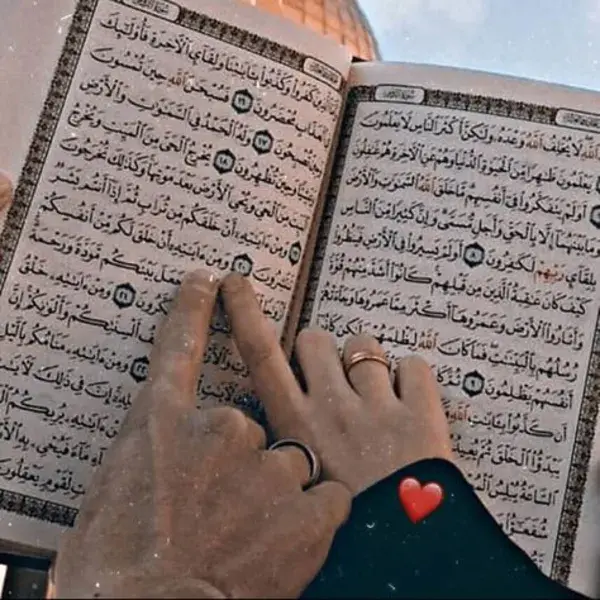 ٱللَّهِ لَا يُخْلِفُ ٱللَّهُ وَعْدَهُۥ وَلَٰكِنَّ أَكْثَرَ ٱلنَّاسِ لَا يَعْلَمُونَ
يَعْلَمُونَ ظَٰهِرًا مِّنَ ٱلْحَيَوٰةِ ٱلدُّنْيَا وَهُمْ عَنِ ٱلْءَاخِرَةِ هُمْ غَٰفِلُونَ
أَوَلَمْ يَتَفَكَّرُوا۟ فِىٓ أَنفُسِهِم مَّا خَلَقَ ٱللَّهُ ٱلسَّمَٰوَٰتِ وَٱلْأَرْضَ
وَمَا بَيْنَهُمَآ إِلَّا بِٱلْحَقِّ وَأَجَلٍ مُّسَمًّى وَإِنَّ كَثِيرًا مِّنَ ٱلنَّاسِ
بِلِقَآئِ رَبِّهِمْ لَكَٰفِرُونَ ٨ أَوَلَمْ يَسِيرُوا۟ فِى ٱلْأَرْضِ فَيَنظُرُوا۟
كَيْفَ كَانَ عَٰقِبَةُ ٱلَّذِينَ مِن قَبْلِهِمْ كَانُوٓا۟ أَشَدَّ مِنْهُمْ قُوَّةً
وَأَثَارُوا۟ ٱلْأَرْضَ وَعَمَرُوهَآ أَكْثَرَ مِمَّا عَمَرُوهَا وَجَآءَتْهُمْ
رُسُلُهُم بِٱلْبَيِّنَٰتِ فَمَا كَانَ ٱللَّهُ لِيَظْلِمَهُمْ وَلَٰكِن كَانُوٓا۟
أَنفُسَهُمْ يَظْلِمُونَ ٩ ثُمَّ كَانَ
أَن كَذَّبُوا۟ بِـَٔايَٰتِ ٱللَّهِ
يَبْدَؤُا۟ ٱلْخَلْقَ ثُمَّ يُعِيدُهُۥ
ٱلسَّاعَةُ يُبْلِسُ
شُفَعَٰٓؤُا۟
ٱلَّذِينَ كَفَرُوا۟ وَكَذَّبُوا۟ بِـَٔايَٰتِنَا وَلِقَآئِ ٱلْءَاخِرَةِ فَأُو۟لَٰٓئِكَ
فِى ٱلْعَذَابِ مُحْضَرُونَ ١٦ فَسُبْحَٰنَ ٱللَّهِ حِينَ تُمْسُونَ
وَحِينَ تُصْبِحُونَ ١٧ وَلَهُ ٱلْحَمْدُ فِى ٱلسَّمَٰوَٰتِ وَٱلْأَرْضِ
وَعَشِيًّا وَحِينَ تُظْهِرُونَ ١٨ يُخْرِجُ ٱلْحَىَّ مِنَ ٱلْمَيِّتِ وَيُخْرِجُ
ٱلْمَيِّتَ مِنَ ٱلْحَىِّ وَيُحْىِ ٱلْأَرْضَ بَعْدَ مَوْتِهَا وَكَذَٰلِكَ تُخْرَجُونَ
١٩ وَمِنْ ءَايَٰتِهِۦٓ أَنْ خَلَقَكُم مِّن تُرَابٍ ثُمَّ إِذَآ أَنتُم بَشَرٌ
تَنتَشِرُونَ ٢٠ وَمِنْ ءَايَٰتِهِۦٓ أَنْ خَلَقَ لَكُم مِّنْ أَنفُسِكُمْ
أَزْوَٰجًا وَجَعَلَ بَيْنَكُم مَّوَدَّةً وَرَحْمَةً
٢١ وَمِنْ ءَايَٰتِهِۦ خَلْقُ
أَلْسِنَتِكُمْ وَأَلْوَٰنِكُمْ إِنَّ
٢٢ وَمِنْ ءَايَٰتِهِۦ مَنَامُكُم بِٱلَّيْلِ
إِنَّ فِى ذَٰلِكَ لَءَايَٰتٍ
وَمِنْ ءَايَٰتِهِۦ يُرِيكُمُ ٱلْبَرْقَ
مَآءً فَيُحْىِۦ بِهِ ٱلْأَرْضَ
لِّقَوْمٍ يَعْقِلُونَ